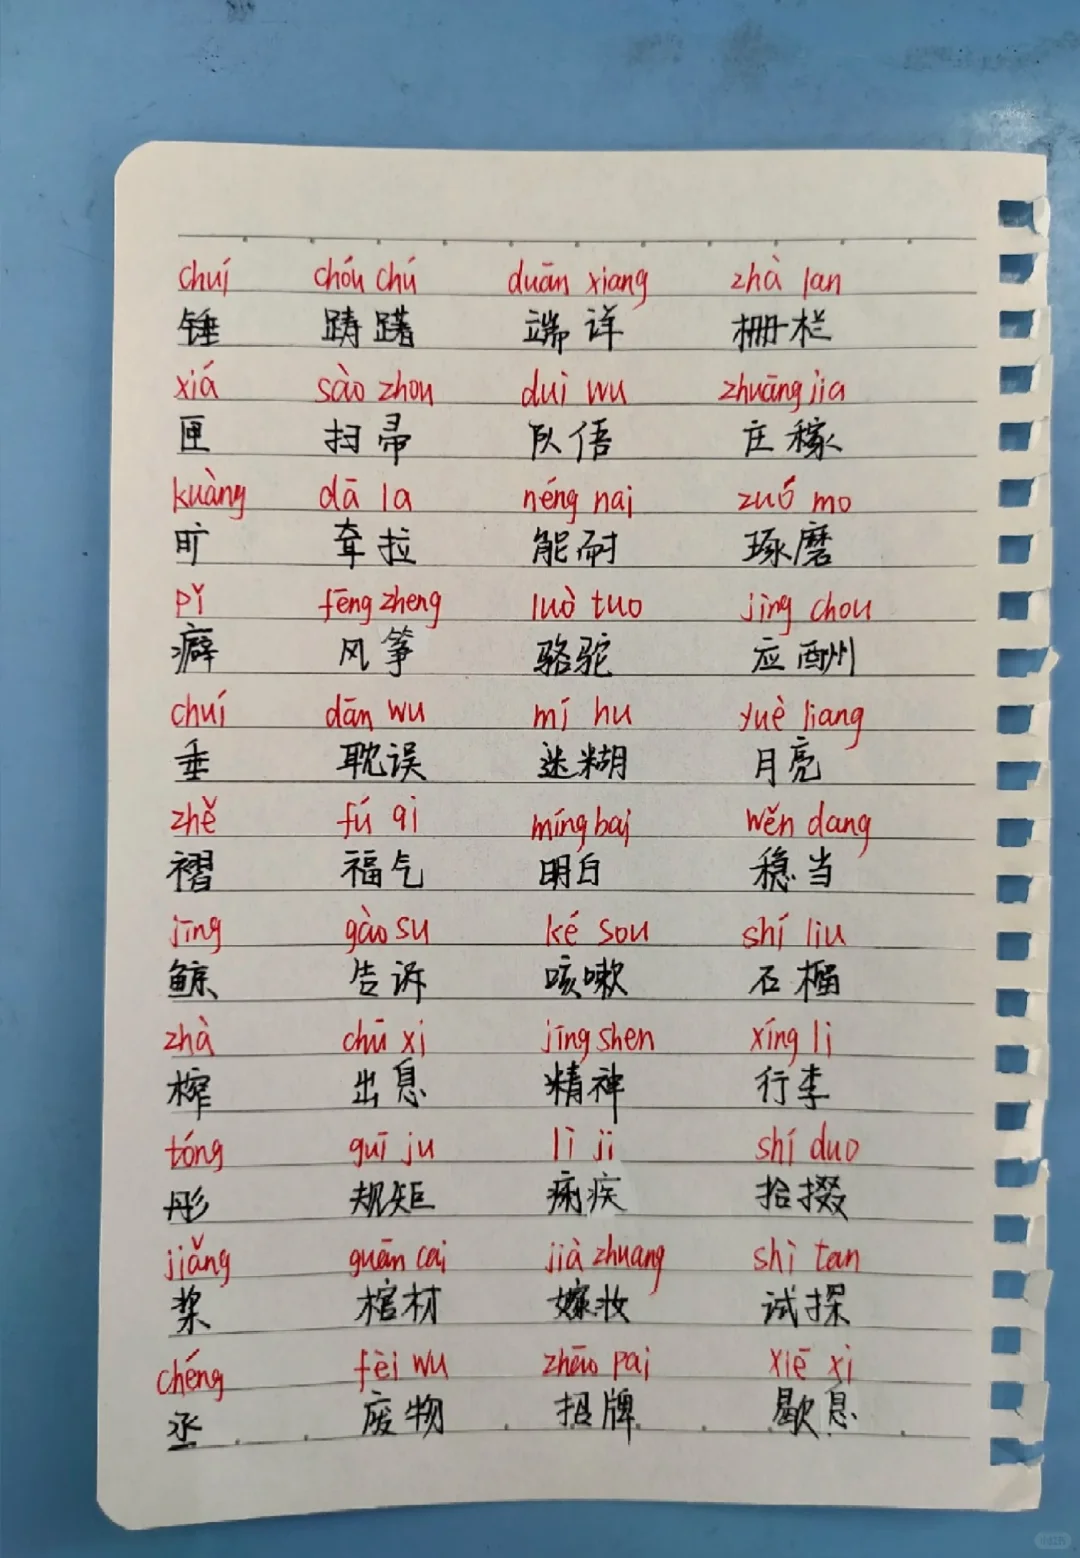 chuí chóu chú duān xiang zhà lan
锤 踌躇 端详 栅栏
xiá sào zhou duì wu zhuāng jia
匣 扫帚 队伍 庄稼
kuàng dā la néng nai zuó mo
旷 耷拉 能耐 琢磨
pǐ fēng zheng luò tuo jìng chou
癖 风筝 骆驼 应酬
chuí dān wu mí hu yuè liang
垂 耽误 迷糊 月亮
zhě fú qi míng bai wěn dang
褶 福气 明白 稳当
jīng gào su ké sou shí liu
鲸 告诉 咳嗽 石榴
zhà chū xi jīng shen xíng li
榨 出息 精神 行李
tóng guī ju lì ji shí duo
彤 规矩 痢疾 拾掇
jiǎng guān cai jià zhuang shì tan
桨 棺材 嫁妆 试探
chéng fèi wu zhāo pai xiē xi
丞 废物 招牌 歇息